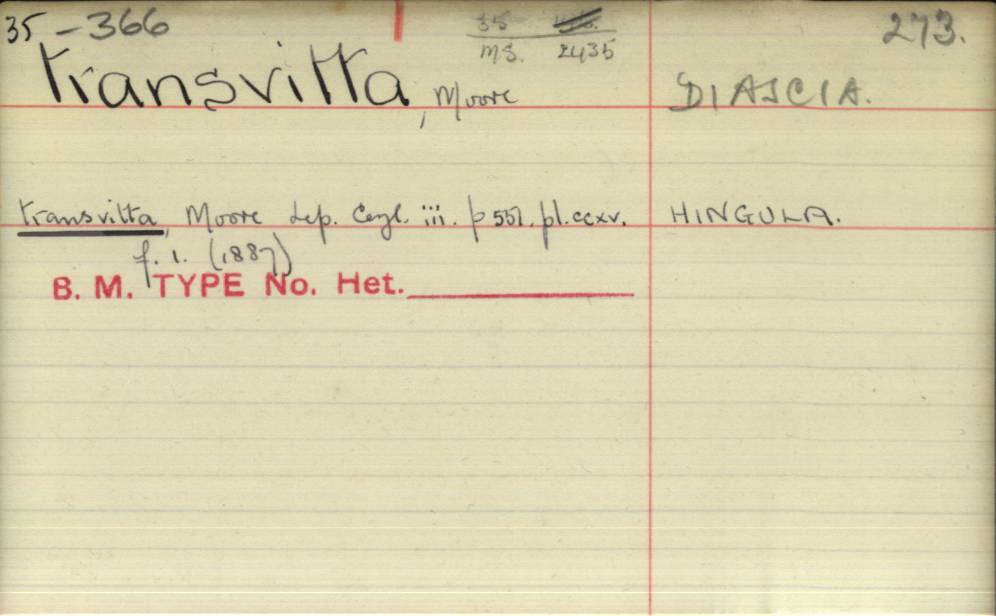 35-366 35 273.
MS. 2435
transvitta, Moore DIASCIA.
transvitta, Moore Lep. Ceyl. iii. p 551. pl. ccxv. HINGULA.
f. 1. (1887)
B. M. TYPE No. Het.